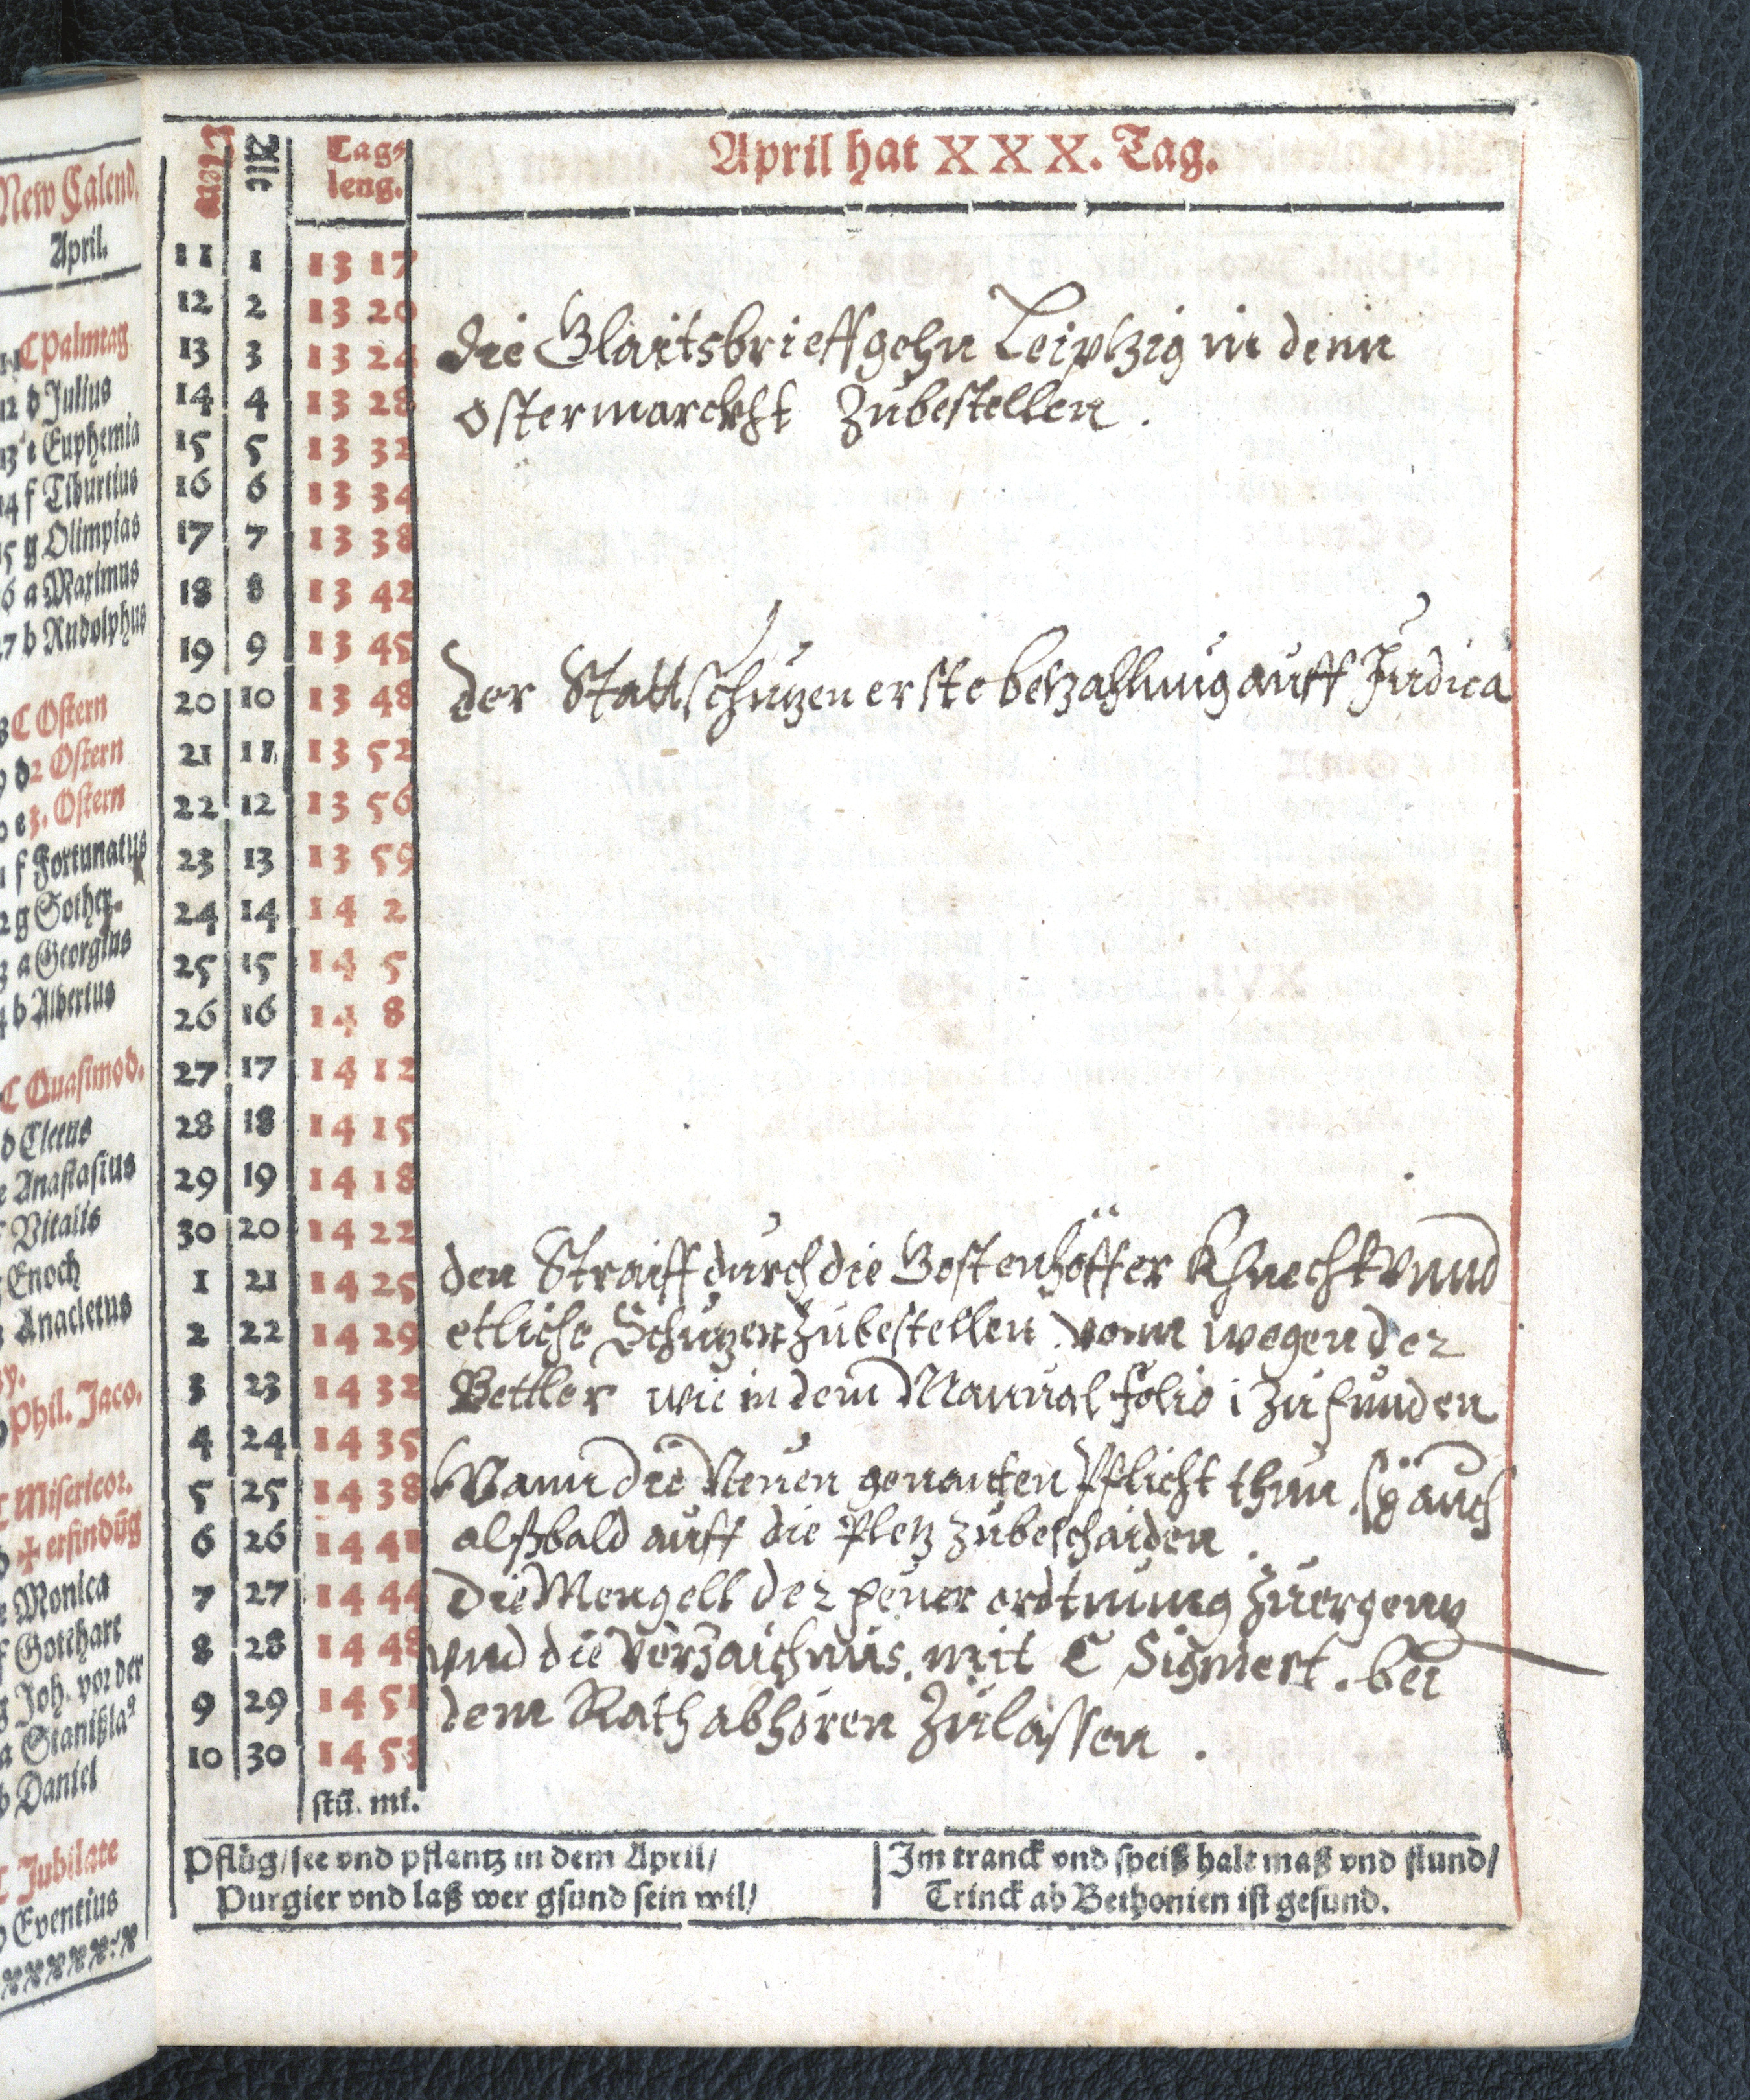 New Calend.
April.
C Palmtag
12 d Julius
13 e Euphemia
14 f Tiburtius
15 g Olimpias
16 a Maximus
17 b Rudolphus
C Ostern
d 2 Ostern
e 3. Ostern
f Fortunatus
g Sother.
a Georgius
b Albertus
C Quasimod.
d Cletus
e Anastasius
f Vitalis
Enoch
Anacletus
Phil. Jaco.
C Misericor.
✠ erfindūg
e Monica
f Gotthart
g Joh. vor der
a Stanißla
b Daniel
C Jubilate
Eventius
Newe Alte Tag-
leng.
April hat XXX. Tag.
11 1 13 17
12 2 13 20
13 3 13 24 die Glaitsbrieff gehn Leiptzig in denn
14 4 13 28 Ostermarckht Zubestellen.
15 5 13 32
16 6 13 34
17 7 13 38
18 8 13 42
19 9 13 45
20 10 13 48 der Statt schutzen erste betzahlung auff Judica
21 11 13 52
22 12 13 56
23 13 13 59
24 14 14 2
25 15 14 5
26 16 14 8
27 17 14 12
28 18 14 15
29 19 14 18
30 20 14 22
1 21 14 25 den Straiff durch die Gostenhöffer Khnecht vnnd
2 22 14 29 etliche Schutzen Zubestellen vonn wegen der
3 23 14 32 Bettler wie in dem Manual folio 1 Zu funden
4 24 14 35
5 25 14 38 Wann die Neuen genanten Pflicht thun auch
6 26 14 41 alßbald auff die Pletz Zubeschaiden.
7 27 14 44 Die Mengell der feuer ordtnung Zuergenz
8 28 14 48 vnd die Verzaichnus. mit C Signiert. bei
9 29 14 51 dem Rath abhören Zulassen.
10 30 14 53
stū. mi.
Pflüg/see vnd pflantz in dem April/
Purgier vnd laß wer gsund sein wil/
Im tranck vnd speiß halt maß vnd stund/
Trinck ab Bethonien ist gesund.